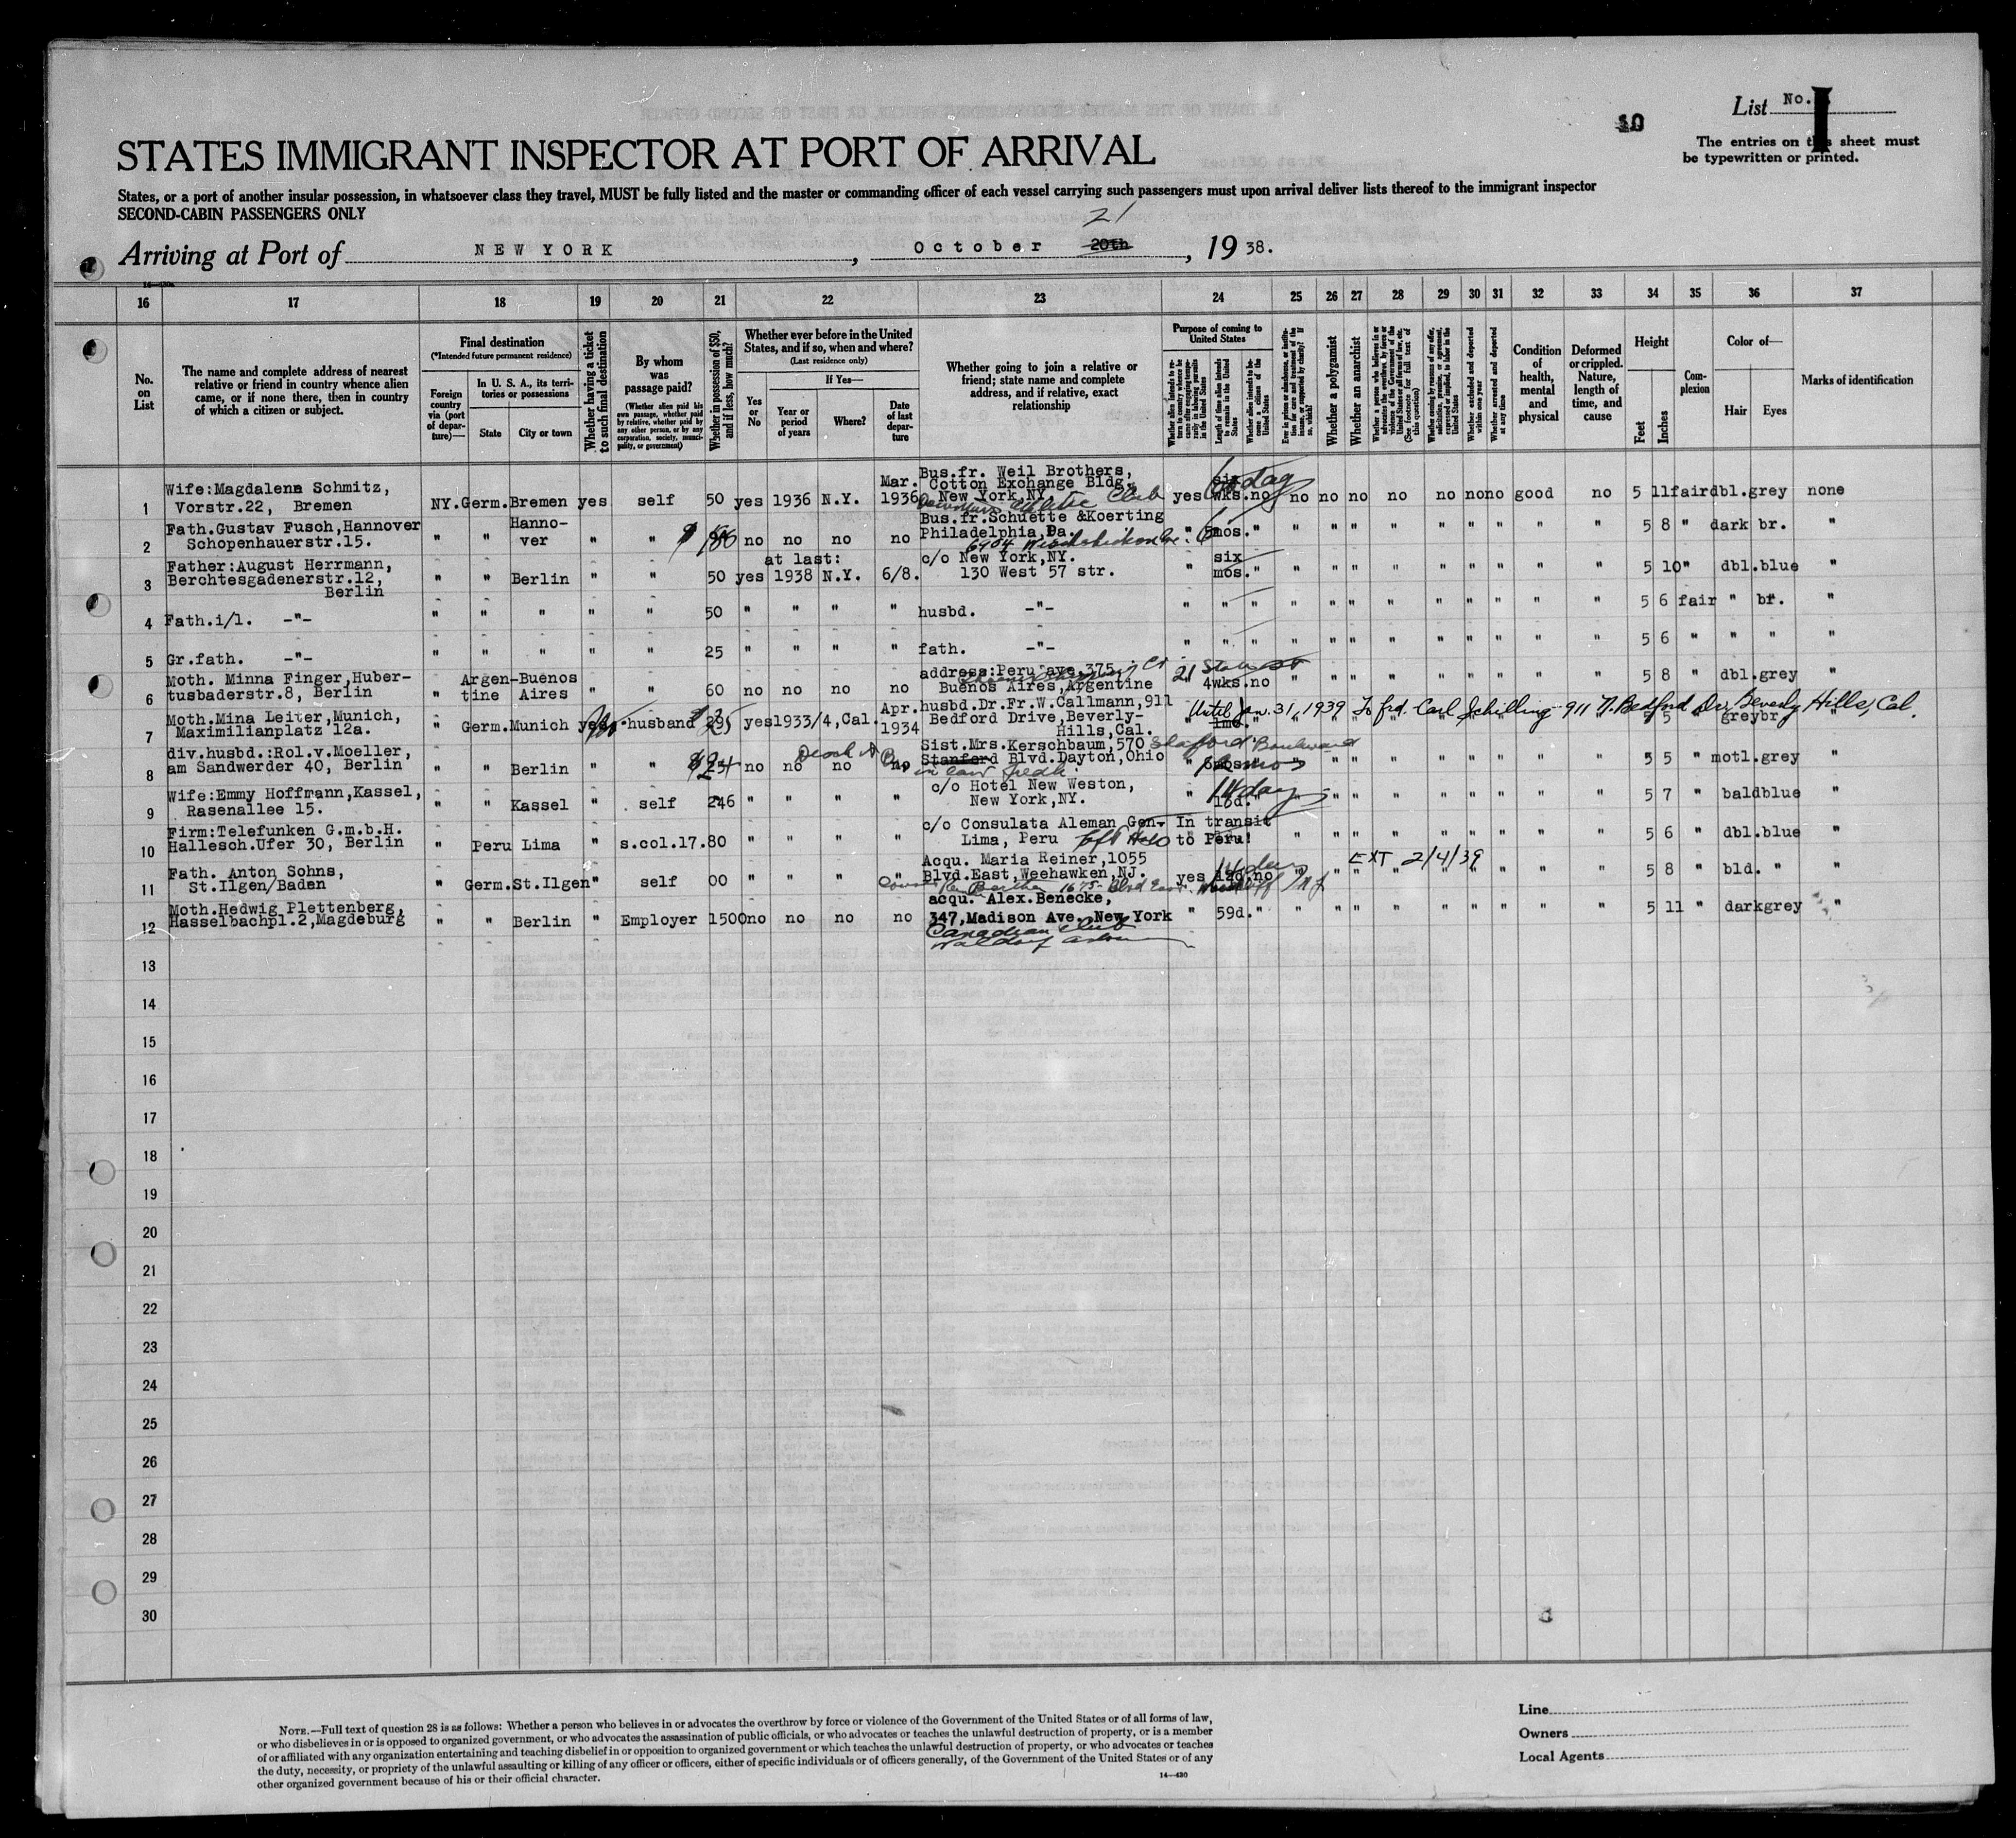 List No. I
10
The entries on this sheet must
be typewritten or printed.
STATES IMMIGRANT INSPECTOR AT PORT OF ARRIVAL
States, or a port of another insular possession, in whatsoever class they travel, MUST be fully listed and the master or commanding officer of each vessel carrying such passengers must upon arrival deliver lists thereof to the immigrant inspector
SECOND-CABIN PASSENGERS ONLY
21
Arriving at Port of NEW YORK, October 20th, 1938.
16 17 18 19 20 21 22 23 24 25 26 27 28 29 30 31 32 33 34 35 36 37
No. on List
The name and complete address of nearest relative or friend in country whence alien came, or if none there, then in country of which a citizen or subject.
Final destination
(*Intended future permanent residence)
Foreign country via (port of departure)—
In U. S. A., its territories or possessions
State
City or town
Whether having a ticket to such final destination
By whom was passage paid?
(Whether alien paid his own passage, whether paid by relative, whether paid by any other person, or by any corporation, society, municipality, or government)
Whether in possession of $50, and if less, how much?
Whether ever before in the United States, and if so, when and where?
(Last residence only)
Yes or No
If Yes—
Year or period of years
Where?
Date of last departure
Whether going to join a relative or friend; state name and complete address, and if relative, exact relationship
Purpose of coming to United States
Length of time alien intends to remain in the United States
Whether alien intends to become a citizen of the United States
Whether a polygamist
Whether an anarchist
Whether excluded and deported within one year
Whether arrested and deported at any time
Condition of health, mental and physical
Deformed or crippled. Nature, length of time, and cause
Height
Feet
Inches
Complexion
Color of—
Hair
Eyes
Marks of identification
1 Wife:Magdalena Schmitz, Vorstr.22, Bremen NY. Germ. Bremen yes self 50 yes 1936 N.Y. Mar. 1936 Bus.fr. Weil Brothers, Cotton Exchange Bldg. New York,NY. Athletic Club yes wks. no no no no no no no no good no 5 11 fair dbl. grey none
2 Fath.Gustav Fusch,Hannover Schopenhauerstr.15. " " Hanno-ver " " no no no no Bus.fr.Schuette &Koerting Philadelphia,Pa. " mos. " " " " " " " " " " 5 8 " dark br. "
3 Father:August Herrmann, Berchtesgadenerstr.12, Berlin " " Berlin " " 50 yes at last: 1938 N.Y. 6/8. c/o New York,NY. 130 West 57 str. " six mos. " " " " " " " " " " 5 10 " dbl. blue "
4 Fath.i/l. -"- " " " " " 50 " " " " husbd. -"- " " " " " " " " " " " " 5 6 fair " br. "
5 Gr.fath. -"- " " " " " 25 " " " " fath. -"- " " " " " " " " " " " " 5 6 " " " "
6 Moth. Minna Finger,Huber-tusbaderstr.8, Berlin " Argen-tine Buenos Aires " " 60 no no no no address:Peru ave,375, Buenos Aires,Argentine " 4wks. no " " " " " " " " " 5 8 " dbl. grey "
7 Moth.Mina Leiter,Munich, Maximilianplatz 12a. " Germ. Munich yes husband yes 1933/4, Cal. Apr. 1934 husbd.Dr.Fr.W.Callmann,911 Bedford Drive,Beverly-Hills,Cal. Until Jan. 31, 1939 To frd. Carl Schilling 911 N. Bedford Dr., Beverly Hills, Cal. 5 grey br.
8 div.husbd.:Rol.v.Moeller, am Sandwerder 40, Berlin " " Berlin " " no no no no Sist.Mrs.Kerschbaum,570 Stanford Blvd.Dayton,Ohio Boulevard in law " " " " " " " " " " 5 5 " motl. grey "
9 Wife:Emmy Hoffmann,Kassel, Rasenallee 15. " " Kassel " self 246 " " " " c/o Hotel New Weston, New York,NY. " 14 days " " " " " " " " " 5 7 " bald blue "
10 Firm:Telefunken G.m.b.H. Hallesch.Ufer 30, Berlin " Peru Lima " s.col.17. 80 " " " " c/o Consulata Aleman Gen. Lima, Peru In transit to Peru! " " " " " " " " " 5 6 " dbl. blue "
11 Fath. Anton Sohns, St.Ilgen/Baden " Germ. St.Ilgen " self 00 " " " " Acqu. Maria Reiner,1055 Blvd.East,Weehawken,NJ. yes 14d. no EXT 2/4/39 " " " " " " " " 5 8 " bld. " "
12 Moth.Hedwig Plettenberg, Hasselbachpl.2,Magdeburg " " Berlin " Employer 1500 no no no no acqu. Alex.Benecke, 347,Madison Ave. New York Canadian Club " 59d. " " " " " " " " " " 5 11 " dark grey "
13
14
15
16
17
18
19
20
21
22
23
24
25
26
27
28
29
30
NOTE.—Full text of question 28 is as follows: Whether a person who believes in or advocates the overthrow by force or violence of the Government of the United States or of all forms of law,
or who disbelieves in or is opposed to organized government, or who advocates the assassination of public officials, or who advocates or teaches the unlawful destruction of property, or is a member
of or affiliated with any organization entertaining and teaching disbelief in or opposition to organized government or which teaches the unlawful destruction of property, or who advocates or teaches
the duty, necessity, or propriety of the unlawful assaulting or killing of any officer or officers, either of specific individuals or of officers generally, of the Government of the United States or of any
other organized government because of his or their official character.
14—430
Line
Owners
Local Agents